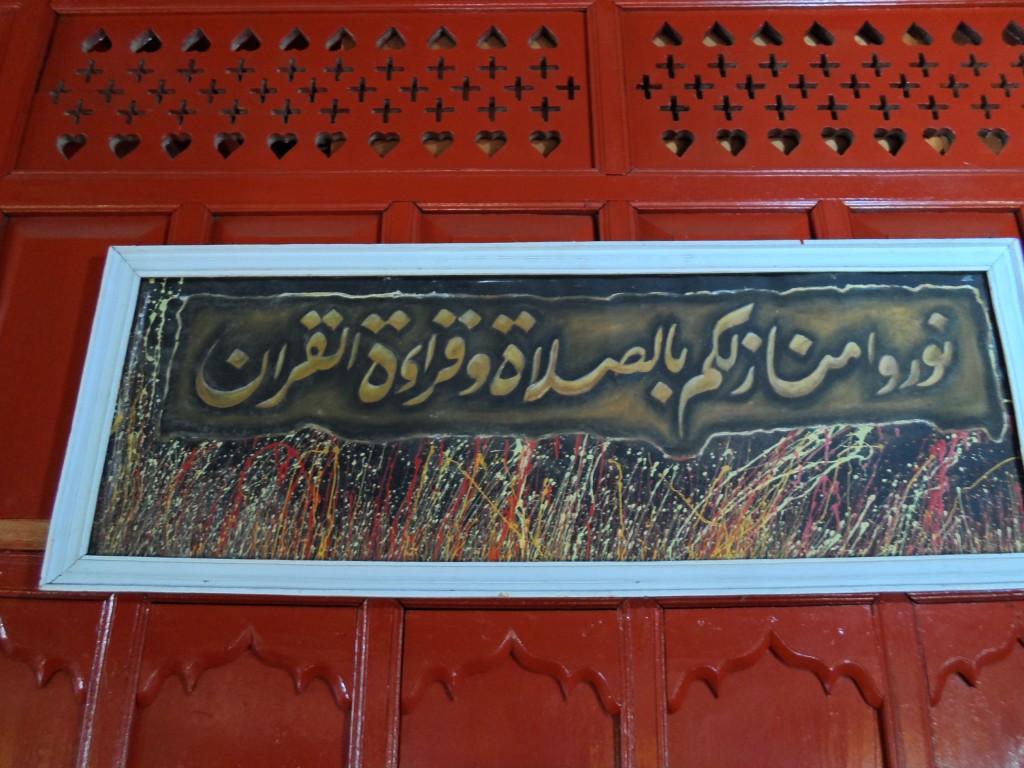 نوروا منازلكم بالصلاة وقراءة القران